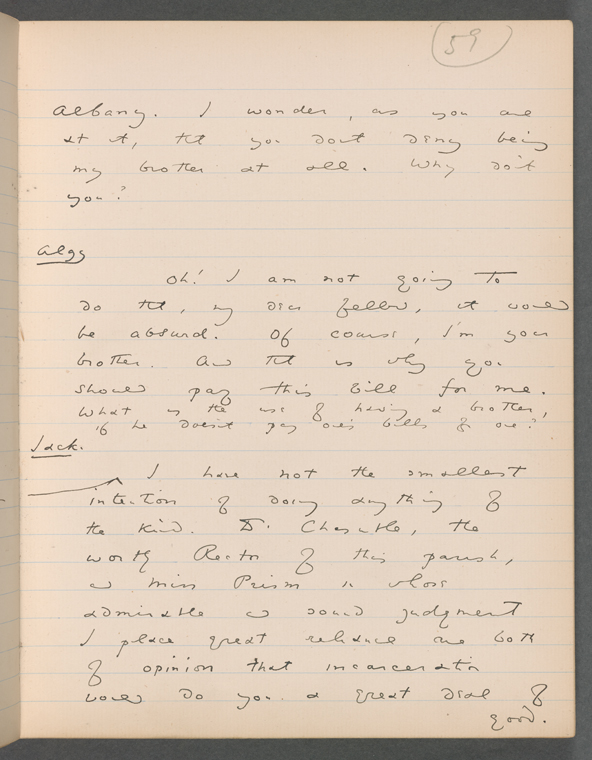 59
Albany. I wonder, as you are
at it, tht you dont deny being
my brother at all. Why dont
you?
Algy
Oh! I am not going to
do tht, my dear fellow, it would
be absurd. Of course, I'm your
brother. And tht is why you
should pay this bill for me.
What is the use of having a brother,
if he doesnt pay one's bills for one?
Jack.
I have not the smallest
intention of doing anything of
the kind. Dr. Chasuble, the
worthy Rector of this parish,
and Miss Prism in whose
admirable and sound judgment
I place great reliance are both
of opinion that incarceration
would do you a great deal of
good.